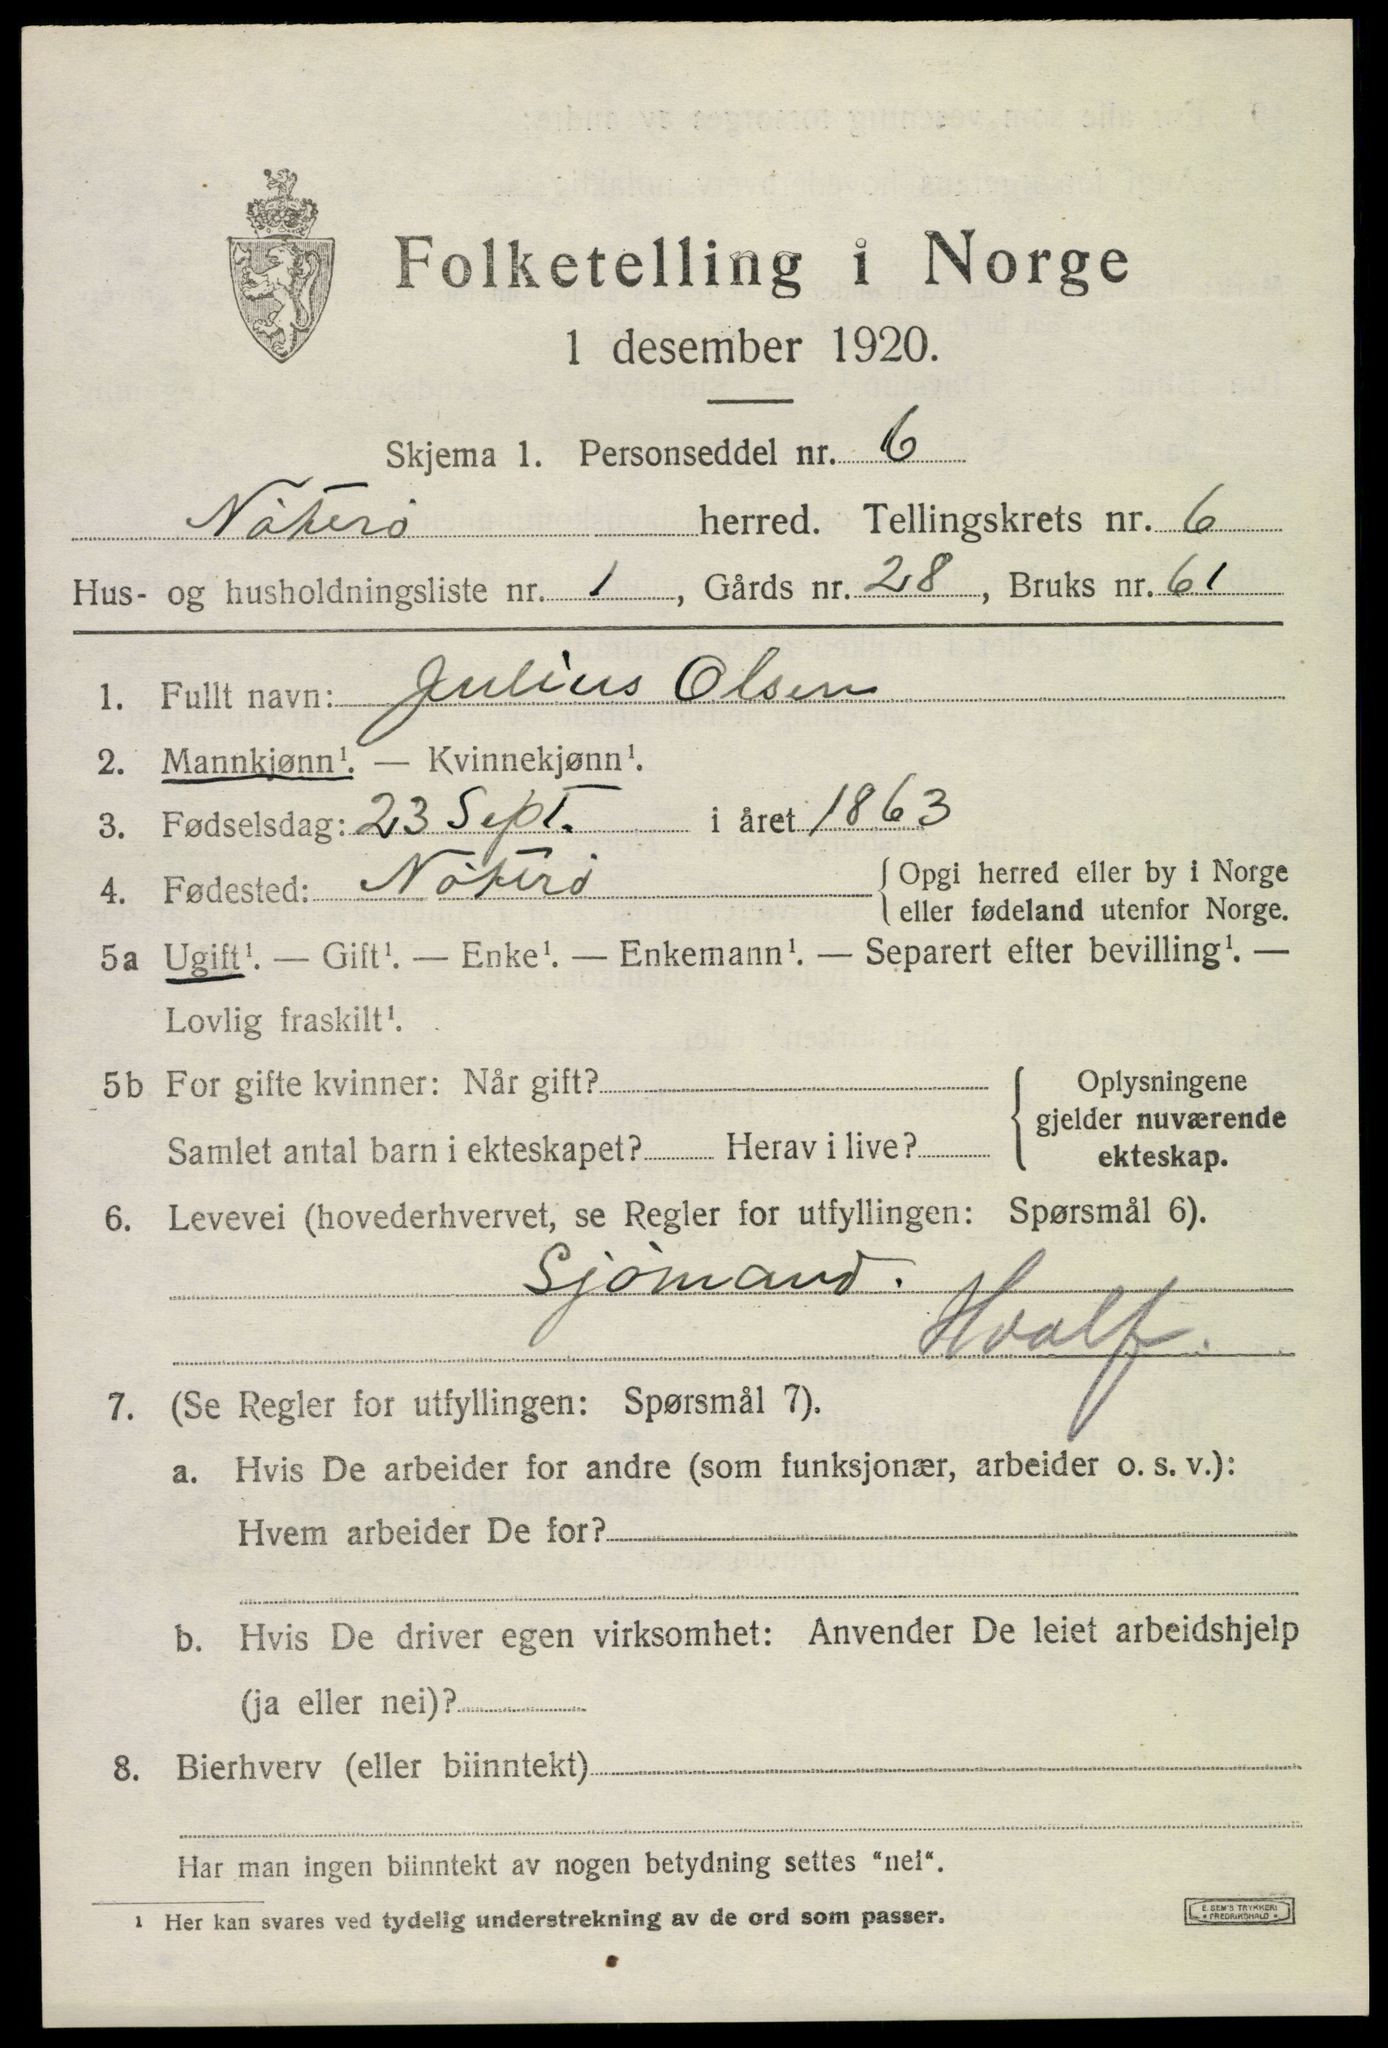 Folketelling i Norge
1 desember 1920.
Skjema 1. Personseddel nr. 6
Nøterø herred. Tellingskrets nr. 6
Hus- og husholdningsliste nr. 1, Gårds nr. 28, Bruks nr. 61
1. Fullt navn: Julius Olsen
2. Mannkjønn¹. — Kvinnekjønn¹.
3. Fødselsdag: 23 Sept. i året 1863
4. Fødested: Nøterø { Opgi herred eller by i Norge
eller fødeland utenfor Norge.
5a Ugift¹. — Gift¹. — Enke¹. — Enkemann¹. — Separert efter bevilling¹. —
Lovlig fraskilt¹.
5b For gifte kvinner: Når gift? { Oplysningene
gjelder nuværende
Samlet antal barn i ekteskapet? Herav i live?
ekteskap.
6. Levevei (hovederhvervet, se Regler for utfyllingen: Spørsmål 6).
Sjömand.
Hvalf.
7. (Se Regler for utfyllingen: Spørsmål 7).
a. Hvis De arbeider for andre (som funksjonær, arbeider o. s. v.):
Hvem arbeider De for?
b. Hvis De driver egen virksomhet: Anvender De leiet arbeidshjelp
(ja eller nei)?
8. Bierhverv (eller biinntekt)
Har man ingen biinntekt av nogen betydning settes "nei".
¹ Her kan svares ved tydelig understrekning av de ord som passer.
E. SEM'S TRYKKERI
• FREDRIKSHALD •